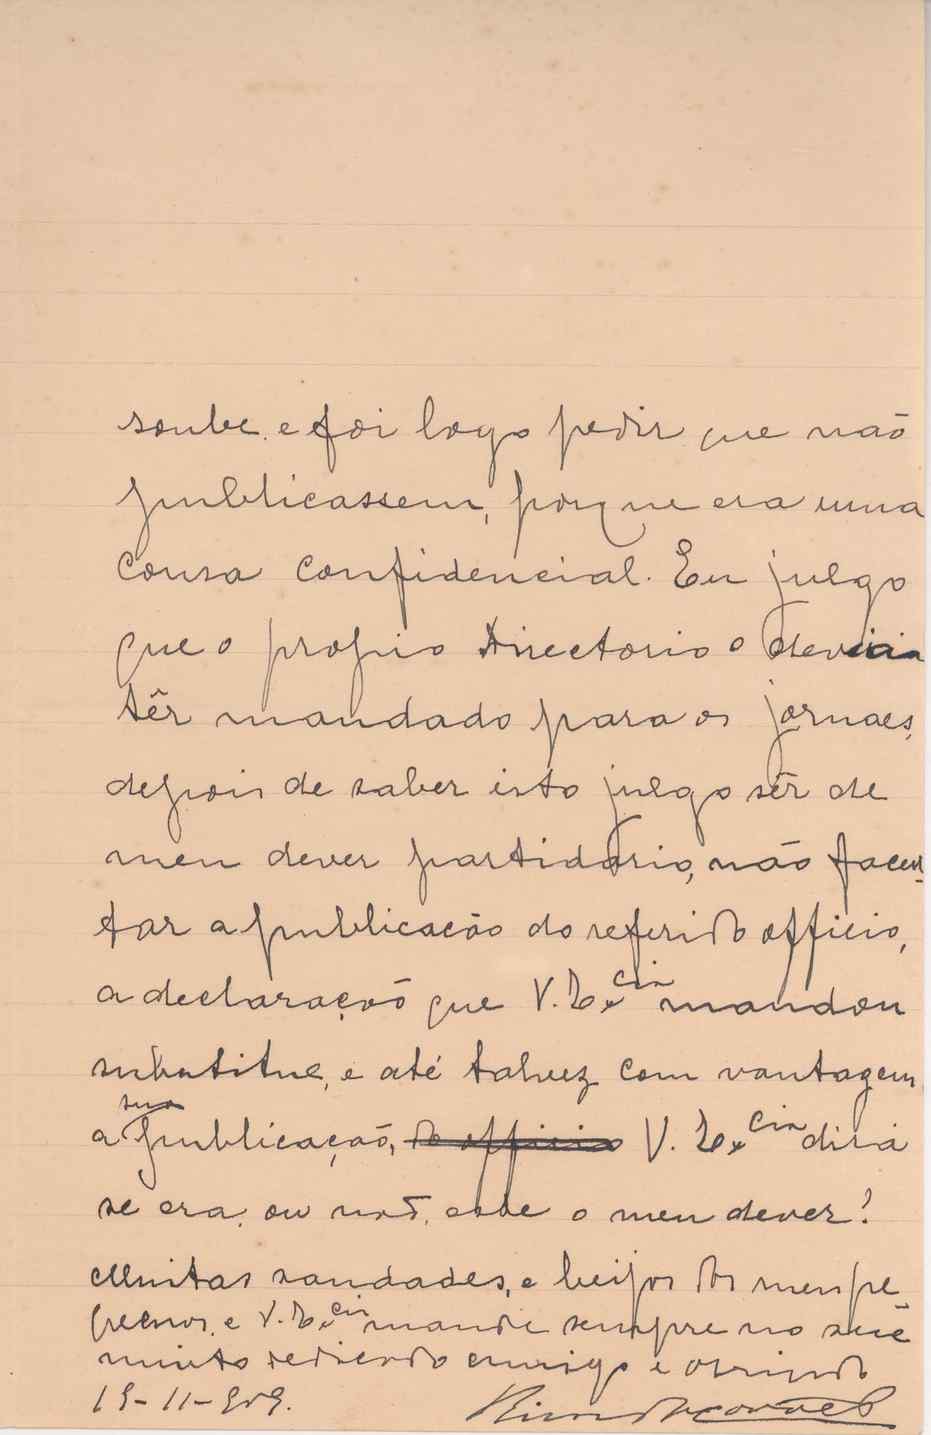 soube e foi logo pedir que não
publicassem, porque era uma
cousa confidencial. Eu julgo
que o proprio Directorio o deveria
têr mandado para os jornaes,
depois de saber isto julgo sêr de
meu dever partidario, não facen-
tar a publicação do referido officio,
a declaração que V. Excia mandou
substitue, e até talvez com vantagem
a sua publicação, do officio V. Excia dirá
se era, ou não, este o meu dever?
Muitas saudades, e beijos dos meus pe-
quenos, e V. Excia mande sempre no seu
muito dedicado amigo e
19-11-909.